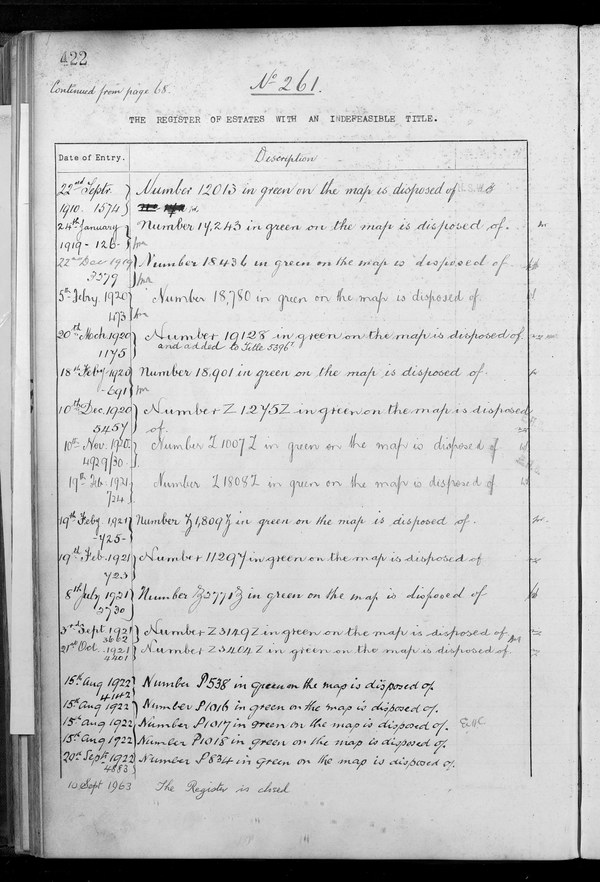 422
Continued from page 68.
No 261.
THE REGISTER OF ESTATES WITH AN INDEFEASIBLE TITLE.
Date of Entry. Description
22nd Septr. Number 12013 in green on the map is disposed of
1910. 1574
24th January Number 14,243 in green on the map is disposed of.
1919 - 126 -
22nd Dec 1919 Number 18436 in green on the map is disposed of
5th Feby. 1920 Number 18,780 in green on the map is disposed of
20th Mch 1920 Number 19128 in green on the map is disposed of
1175 and added to Title 5396
18th Feby 1920 Number 18,901 in green on the map is disposed of.
- 691
10th Dec. 1920 Number Z 1275Z in green on the map is disposed
5457 of.
10th Nov. 1920. Number Z 1007Z in green on the map is disposed of
4929/30
19th Feb. 1921 Number Z 1808Z in green on the map is disposed of
724
19th Feby. 1921 Number Z1,809Z in green on the map is disposed of.
- 725 -
19th Feb. 1921 Number 1129Y in green on the map is disposed of
723
8th July 1921 Number Z2771Z in green on the map is disposed of
2730
3rd Sept. 1921 Number Z3149Z in green on the map is disposed of
3662
21st Oct. 1921 Number Z3404Z in green on the map is disposed of.
4401
15th Aug 1922 Number P538 in green on the map is disposed of.
4142
15th Aug 1922 Number P1016 in green on the map is disposed of.
15th Aug 1922 Number P1017 in green on the map is disposed of.
15th Aug 1922 Number P1018 in green on the map is disposed of.
20th Septr 1922 Number P834 in green on the map is disposed of.
4883
10 Sept 1963 The Register is closed